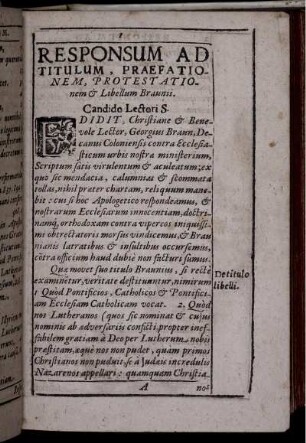 RESPONSUM AD
TITULUM, PRAEFATIO-
NEM, PROTESTATIO-
nem & Libellum Braunii.
Candido Lectori S.
EDIDIT, Christiane & Bene-
vole Lector, Georgius Braun, De-
canus Coloniensis contra Ecclesia-
sticum urbis nostræ ministerium,
Scriptum satis virulentum & aculeatum; ex
quo si mendacia, calumnias & scommata
tollas, nihil præter chartam, reliquum mane-
bit: cui si hoc Apologetico respondeamus, &
nostrarum Ecclesiarum innocentiam, doctri-
namq; orthodoxam contra vipereos iniquissi-
mi obtrectatoris morsus vindicemus, & Brau-
nianis latratibus & insultibus occursemus,
cõtra officium haud dubiè non facturi sumus.
Quæ movet suo titulo Braunius, si rectè
examinetur, veritate destituuntur, nimirum
1. Quòd Pontificios, Catholicos & Pontifici-
am Ecclesiam Catholicam vocat. 2. Quòd
nos Lutheranos (quos sic nominat & cujus
nominis ab adversariis conficti, propter inef-
fabilem gratiam à Deo per Lutherum, nobis
præstitam, æquè nos non pudet, quam primos
Christianos non puduit, se à Judæis incredulis
Nazarenos appellari: quamquam Christia-
A
nos
De titulo
libelli.